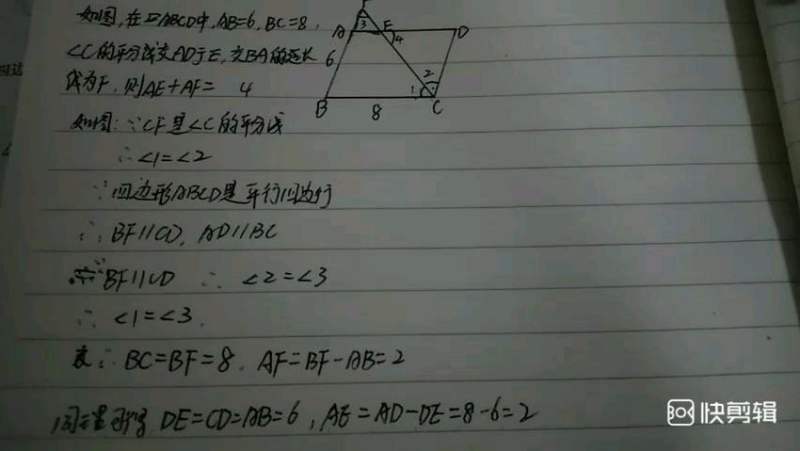 如图,在▱ABCD中,AB=6,BC=8,
∠C的平分线交AD于E,交BA的延长
线为F,则AE+AF= 4
F
A
E
D
3
4
6
2
1
B
8
C
如图:∵CF是∠C的平分线
∴∠1=∠2
∵四边形ABCD是平行四边行
∴BF∥CD,AD∥BC
∵BF∥CD ∴∠2=∠3
∴∠1=∠3.
∴BC=BF=8.AF=BF-AB=2
同理可得 DE=CD=AB=6,AE=AD-DE=8-6=2
快剪辑